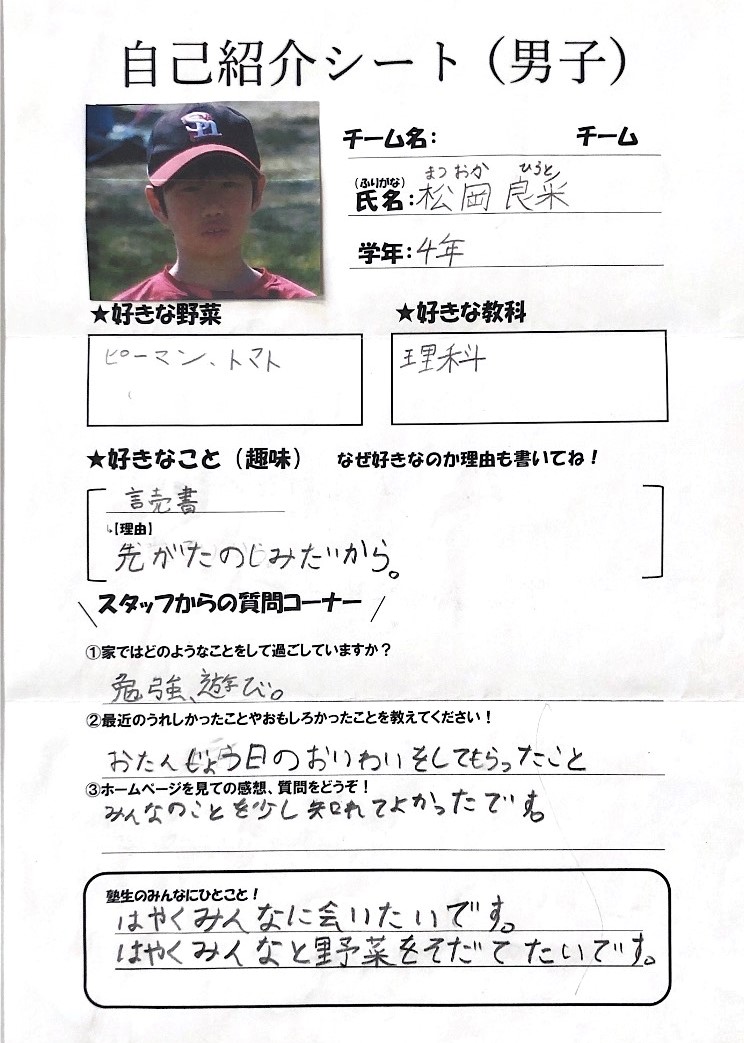 自己紹介シート（男子）
チーム名：　　チーム
（ふりがな） まつおか ひろと
氏名：松岡 良采
学年：4年
★好きな野菜
ピーマン、トマト
★好きな教科
理科
★好きなこと（趣味）　なぜ好きなのか理由も書いてね！
読書
【理由】
先がたのしみだから。
スタッフからの質問コーナー
①家ではどのようなことをして過ごしていますか？
勉強、遊び。
②最近のうれしかったことやおもしろかったことを教えてください！
おたんじょう日のおいわいをしてもらったこと
③ホームページを見ての感想、質問をどうぞ！
みんなのことを少し知れてよかったです。
塾生のみんなにひとこと！
はやくみんなに会いたいです。
はやくみんなと野菜をそだてたいです。